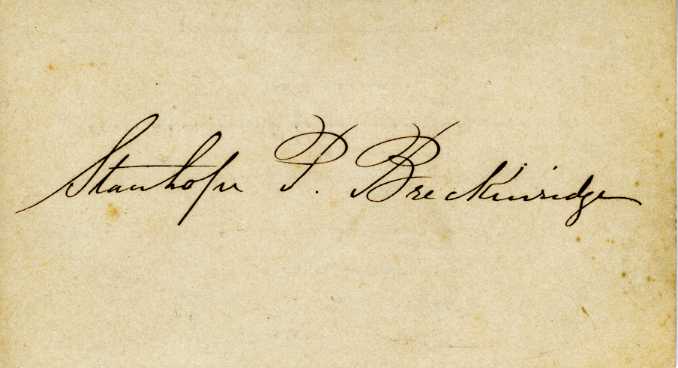 Stanhope P. Breckinridge